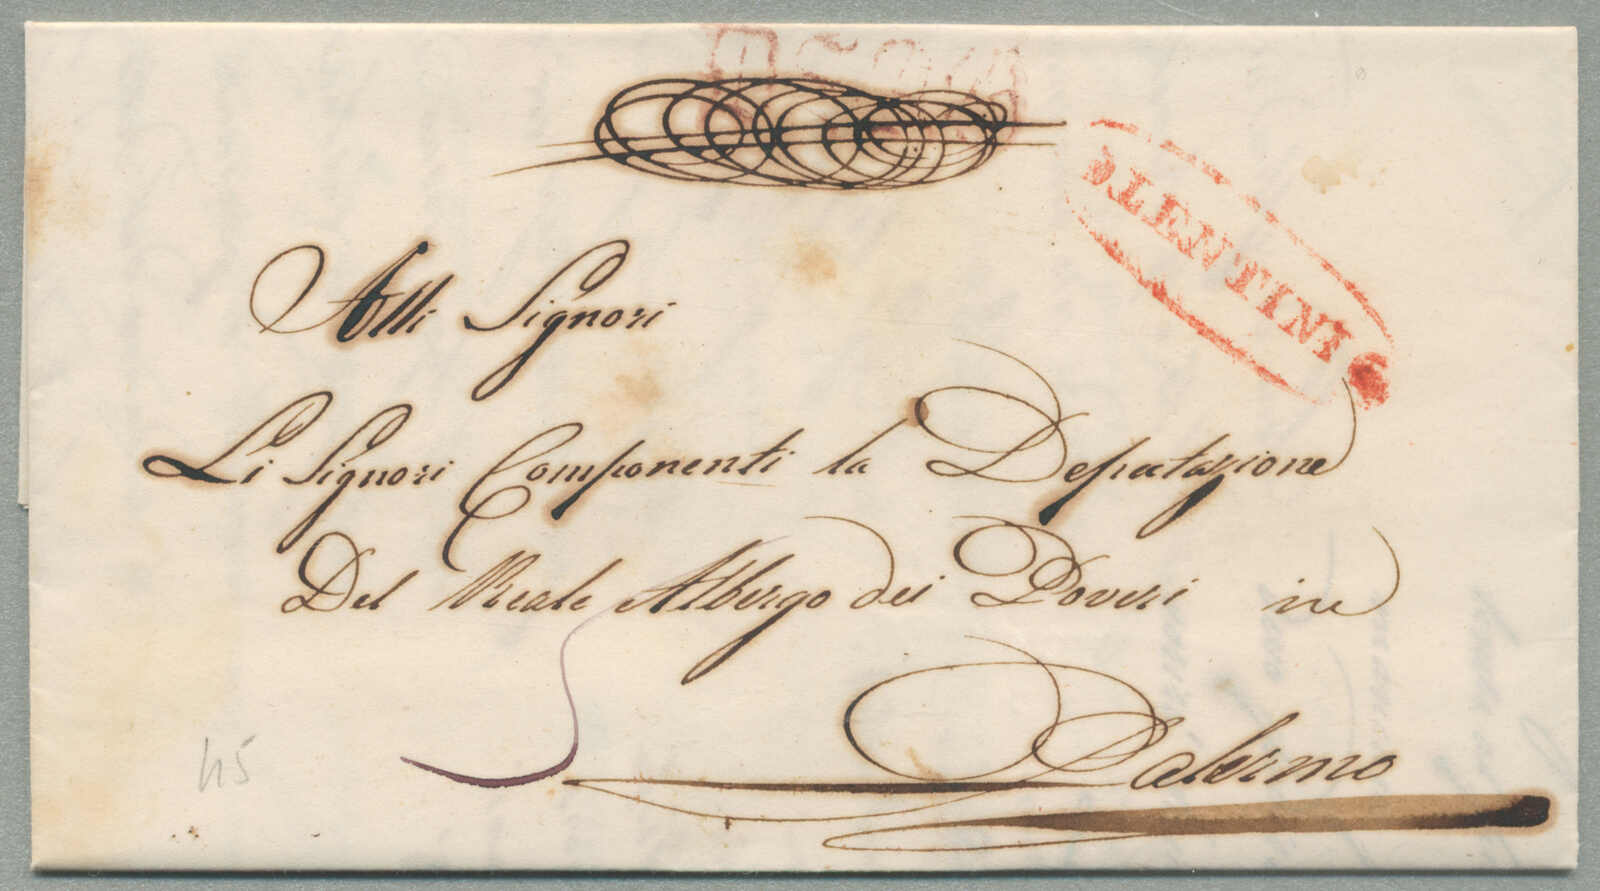 LENTINI
Alli Signori
Li Signori Componenti la Deputazione
Del Reale Albergo dei Poveri in
Palermo
45